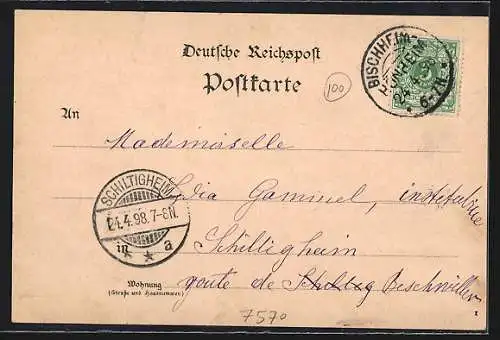 Deutsche Reichspost
Postkarte
100
BISCHHEIM-
HÖNHEIM
24 4
6-7N
An
Mademoiselle
Lydia Gammel, institutrice
SCHILTIGHEIM
24.4.98.7-8N.
a
Schiltigheim
route de Schiltig Bischwiller
Wohnung
(Straße und Hausnummer)
7570
1